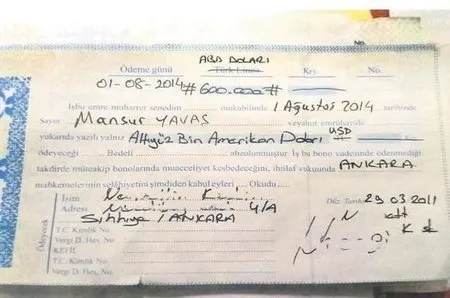 No.
ABD DOLARI
Ödeme günü Türk Lirası Krş. No.
01-08-2014 #600.000#
İşbu emre muharrer senedim mukabilinde 1 Ağustos 2014 tarihinde
Sayın Mansur YAVAŞ veyahut emrühavale
yukarıda yazılı yalnız Altıyüz Bin Amerikan Doları USD
ödeyeceğ Bedeli ahzolunmuştur. İş bu bono vadesinde ödenmediği
takdirde müteakip bonoların muacceliyet kesbedeceğini, ihtilaf vukuunda ANKARA
mahkemelerinin selâhiyetini şimdiden kabul eyleri Okudu
İsim
Düz. Tarihi 29 03 2011
Adresi 4/A
Sıhhıye / ANKARA
Ödeyecek
T.C. Kimlik No.
Vergi D. Hes. No
KEFİL
T.C. Kimlik No.
Vergi D. Hes. No